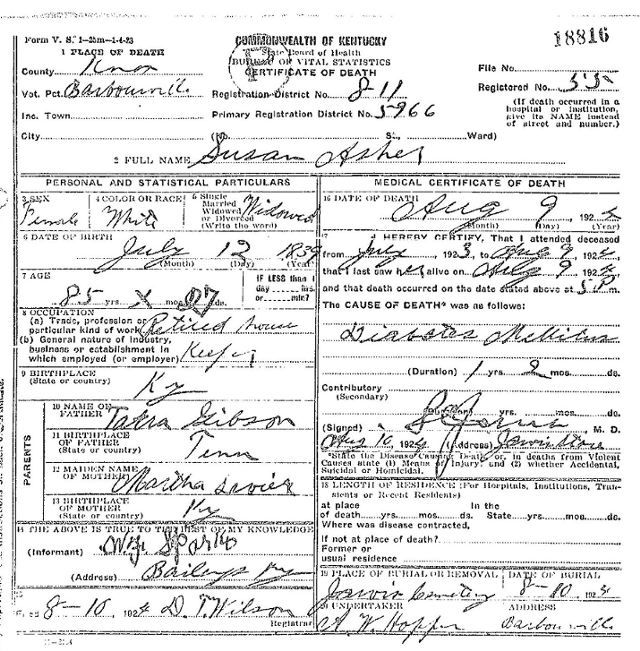 Form V. S. 1-25m-1-4-23
COMMONWEALTH OF KENTUCKY
State Board of Health
BUREAU OF VITAL STATISTICS
CERTIFICATE OF DEATH
18816
1 PLACE OF DEATH
County Knox
Vot. Pct. Barbourville
Inc. Town
City
Registration District No. 8-11
Primary Registration District No. 5966
(No. St., Ward)
File No.
Registered No. 55
(If death occurred in a
hospital or institution,
give its NAME instead
of street and number.)
2 FULL NAME Susan Asher
PERSONAL AND STATISTICAL PARTICULARS
3 SEX
Female
4 COLOR OR RACE
White
5 Single
Married
Widowed
or Divorced
(Write the word)
Widowed
6 DATE OF BIRTH
July 12 1839
(Month) (Day) (Year)
7 AGE
85 yrs. X mos. 27 ds.
IF LESS than 1
day .... hrs.
or .... min.?
8 OCCUPATION
(a) Trade, profession or
particular kind of work Retired house
(b) General nature of industry,
business or establishment in
which employed (or employer) Keeper
9 BIRTHPLACE
(State or country)
Ky
PARENTS
10 NAME OF
FATHER Gibson
11 BIRTHPLACE
OF FATHER
(State or country) Tenn
12 MAIDEN NAME
OF MOTHER Martha
13 BIRTHPLACE
OF MOTHER
(State or country) Ky
14 THE ABOVE IS TRUE TO THE BEST OF MY KNOWLEDGE
(Informant) Sparks
(Address) Baileys Ky
15
8-10 1924 D. T. Wilson
Registrar
MEDICAL CERTIFICATE OF DEATH
16 DATE OF DEATH
Aug 9 1924
(Month) (Day) (Year)
17 I HEREBY CERTIFY, That I attended deceased
from July 1923, to Aug 9 1924
that I last saw her alive on Aug 9 1924
and that death occurred on the date stated above at 5 P m.
The CAUSE OF DEATH* was as follows:
Diabetes Mellitus
(Duration) 1 yrs. 2 mos. ds.
Contributory
(Secondary)
(Duration) yrs. mos. ds.
(Signed) M. D.
Aug 10 1924 (Address)
*State the Disease Causing Death or, in deaths from Violent
Causes state (1) Means of Injury; and (2) whether Accidental,
Suicidal or Homicidal.
18 LENGTH OF RESIDENCE (For Hospitals, Institutions, Tran-
sients or Recent Residents)
at place In the
of death yrs. mos. ds. State yrs. mos. ds.
Where was disease contracted,
If not at place of death?
Former or
usual residence
19 PLACE OF BURIAL OR REMOVAL
Cemetery
DATE OF BURIAL
8-10 1924
20 UNDERTAKER
W Hopper
ADDRESS
Barbourville